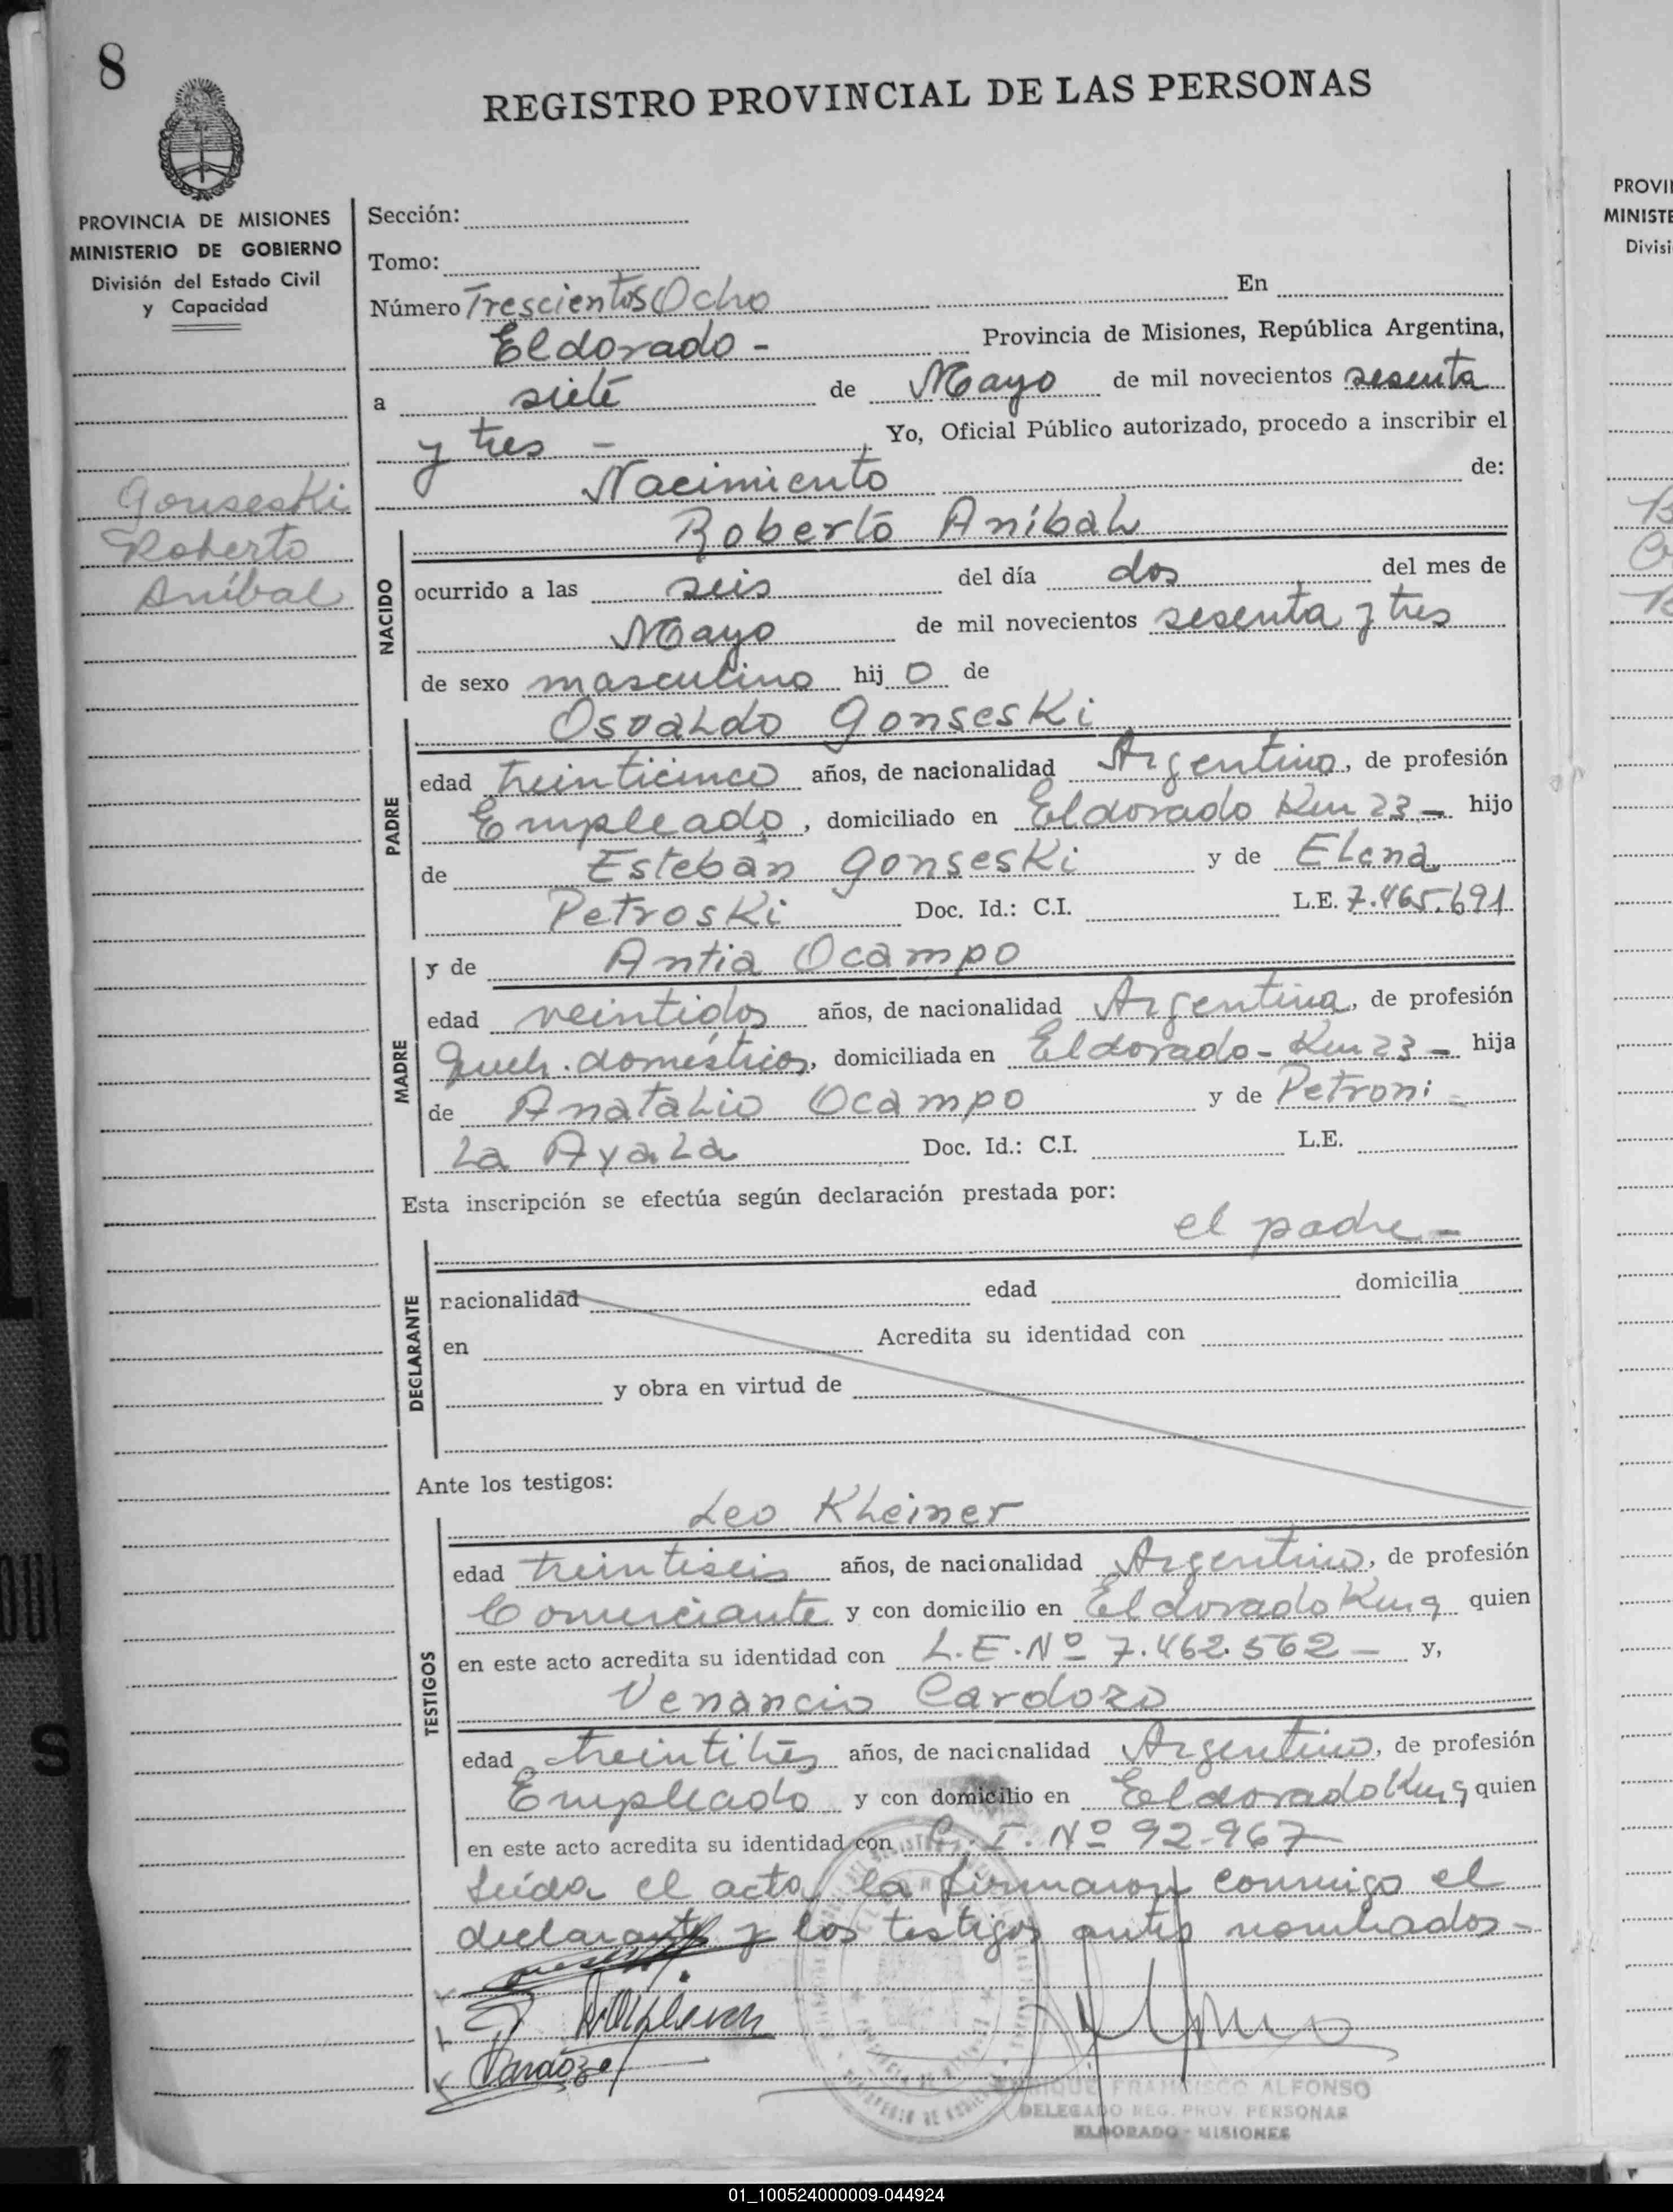 8
REGISTRO PROVINCIAL DE LAS PERSONAS
PROVINCIA DE MISIONES
MINISTERIO DE GOBIERNO
División del Estado Civil
y Capacidad
Gonseski
Roberto
Aníbal
Sección:
Tomo:
Número Trescientos Ocho En
Eldorado - Provincia de Misiones, República Argentina,
a siete de Mayo de mil novecientos sesenta
y tres - Yo, Oficial Público autorizado, procedo a inscribir el
Nacimiento de:
NACIDO
Roberto Aníbal
ocurrido a las seis del día dos del mes de
Mayo de mil novecientos sesenta y tres
de sexo masculino hij o de
PADRE
Osvaldo Gonseski
edad treinticinco años, de nacionalidad Argentino, de profesión
Empleado, domiciliado en Eldorado Km 23 - hijo
de Esteban Gonseski y de Elena
Petroski Doc. Id.: C.I. L.E. 7.465.691
MADRE
y de Antia Ocampo
edad veintidos años, de nacionalidad Argentina, de profesión
Queh. domésticos, domiciliada en Eldorado - Km 23 - hija
de Anatalio Ocampo y de Petroni -
la Ayala Doc. Id.: C.I. L.E.
Esta inscripción se efectúa según declaración prestada por:
el padre -
DECLARANTE
nacionalidad edad domicilia
en Acredita su identidad con
y obra en virtud de
Ante los testigos:
TESTIGOS
Leo Kleiner
edad treintiseis años, de nacionalidad Argentino, de profesión
Comerciante y con domicilio en Eldorado Km 9 quien
en este acto acredita su identidad con L.E. Nº 7.462.562 - y,
Venancio Cardozo
edad treintitrés años, de nacionalidad Argentino, de profesión
Empleado y con domicilio en Eldorado Km 9 quien
en este acto acredita su identidad con C.I. Nº 92.967
Leída el acta, la firmaron conmigo el
declarante y los testigos antes nombrados -
Cardozo
ENRIQUE FRANCISCO ALFONSO
DELEGADO REG. PROV. PERSONAS
ELDORADO - MISIONES
PROVI
MINISTE
Divisi
01_100524000009-044924